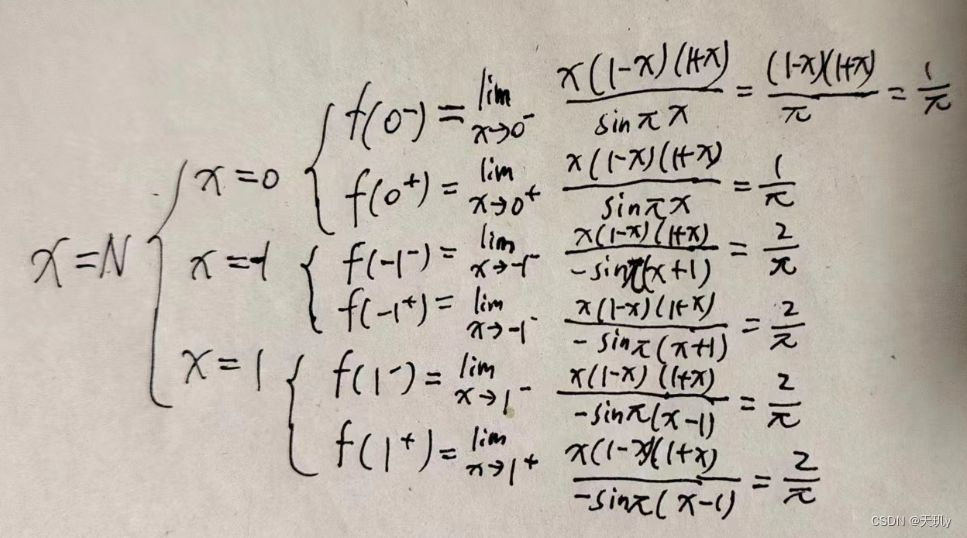 f(0⁻) = lim x→0⁻ x(1-x)(1+x) / sinπx = (1-x)(1+x) / π = 1/π
x=0 f(0⁺) = lim x→0⁺ x(1-x)(1+x) / sinπx = 1/π
x=N x=-1 f(-1⁻) = lim x→-1⁻ x(1-x)(1+x) / -sinπ(x+1) = 2/π
f(-1⁺) = lim x→-1⁻ x(1-x)(1+x) / -sinπ(x+1) = 2/π
x=1 f(1⁻) = lim x→1⁻ x(1-x)(1+x) / -sinπ(x-1) = 2/π
f(1⁺) = lim x→1⁺ x(1-x)(1+x) / -sinπ(x-1) = 2/π
CSDN @天玑y